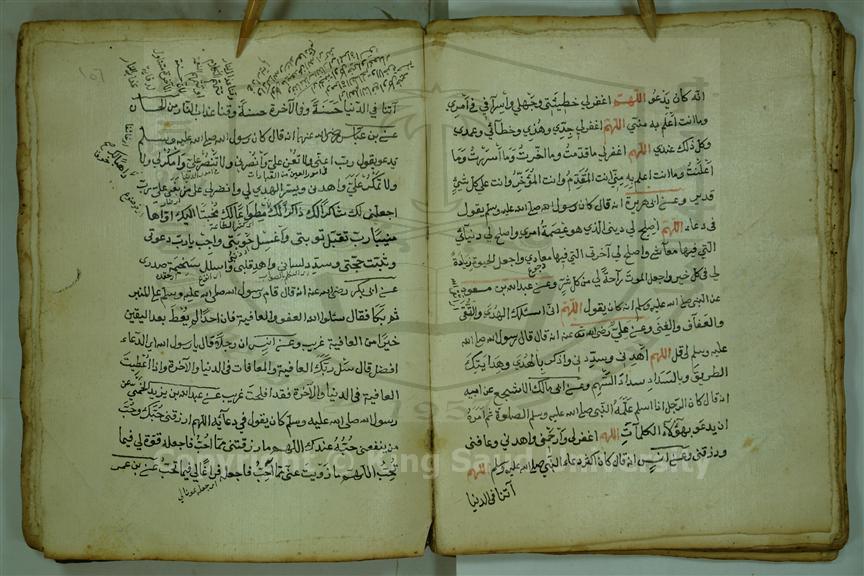 انه كان يدعو اللهم اغفرلي خطيئتي وجهلي واسرافي في امري
وما انت اعلم به مني اللهم اغفرلي جدي وهزلي وخطائي وعمدي
وكل ذلك عندي اللهم اغفرلي ما قدمت وما اخرت وما اسررت وما
اعلنت وما انت اعلم به مني انت المقدم وانت المؤخر وانت على كل شئ
قدير وعن ابي هريرة انه قال كان رسول الله صلى الله عليه وسلم يقول
في دعائه اللهم اصلح لي ديني الذي هو عصمة امري واصلح لي دنيائي
التي فيها معاشي واصلح لي آخرتي التي فيها معادي واجعل الحيوة زيادة
لي في كل خير واجعل الموت راحة لي من كل شر وعن عبدالله بن مسعود
عن النبي صلى الله عليه وسلم انه كان يقول اللهم اني اسئلك الهدى والتقى
والعفاف والغنى وعن علي رضي الله عنه انه قال قال رسول الله صلى الله
عليه وسلم قل اللهم اهدني وسددني واذكر بالهدى وهدايتك
الطريق وبالسداد سداد السهم وعن ابي مالك الاشجعي عن ابيه
انه قال كان الرجل اذا اسلم علمه النبي صلى الله عليه وسلم الصلوة ثم امره
ان يدعو بهؤلاء الكلمات اللهم اغفرلي وارحمني واهدني وعافني
وارزقني وعن انس انه قال كان اكثر دعاء النبي صلى الله عليه وسلم اللهم
آتنا في الدنيا
آتنا في الدنيا حسنة وفي الآخرة حسنة وقنا عذاب النار من الحسان
عن بن عباس رضي الله عنهما انه قال كان رسول الله صلى الله عليه وسلم
يدعو يقول رب اعني ولا تعن علي وانصرني ولا تنصر علي وامكر لي ولا
ولا تمكر علي واهدني ويسر الهدى لي وانصرني على من بغى علي رب
اجعلني لك شاكرا لك ذاكرا لك مطواعا لك مخبتا اليك اواها
منيبا رب تقبل توبتي واغسل حوبتي واجب يا رب دعوتي
وثبت حجتي وسدد لساني واهد قلبي واسلل سخيمة صدري
عن ابي بكر رضي الله عنه انه قال قام رسول الله صلى الله عليه وسلم على المنبر
ثم بكا فقال سئلوا الله العفو والعافية فان احدا لم يعط بعد اليقين
خيرا من العافية غريب وعن انس ان رجلا قال يا رسول الله اي الدعاء
افضل قال سل ربك العافية والمعافات في الدنيا والآخرة واذا اعطيت
العافية في الدنيا والآخرة فقد افلحت غريب عن عبدالله بن يزيد الخطمي عن
رسول الله صلى الله عليه وسلم كان يقول في دعائه اللهم ارزقني حبك وحب
من ينفعني حبه عندك اللهم ما رزقتني مما احب فاجعله قوة لي فيما
تحب اللهم ما زويت عني مما احب فاجعله فراغا لي فيما تحب عن بن عمر
Copyright © King Saud University
1957